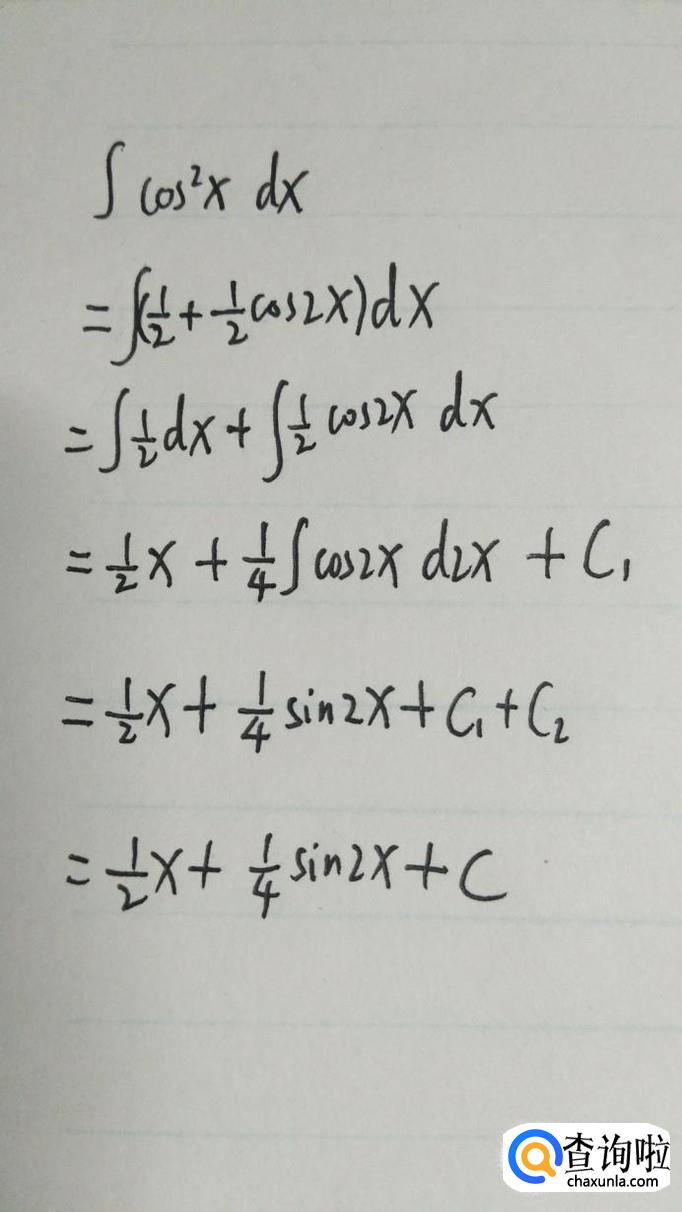 ∫ cos²x dx
= ∫(1/2 + 1/2 cos2x)dx
= ∫1/2 dx + ∫1/2 cos2x dx
= 1/2 x + 1/4 ∫cos2x d2x + C₁
= 1/2 x + 1/4 sin2x + C₁ + C₂
= 1/2 x + 1/4 sin2x + C
查询啦
chaxunla.com